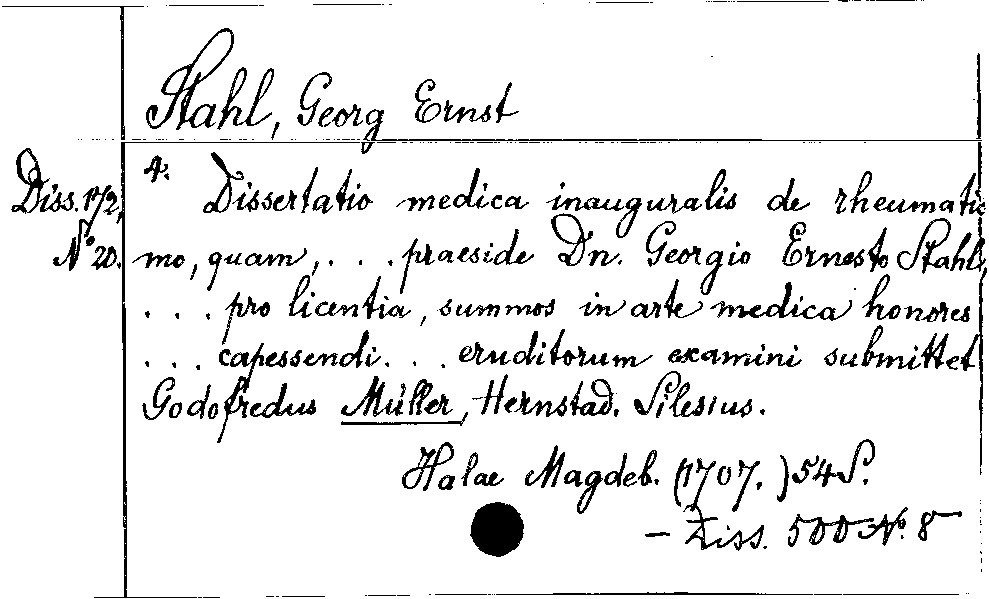 Stahl, Georg Ernst
4. Dissertatio medica inauguralis de rheumatis
Diss. 172,
N° 20.
mo, quam, . . . praeside Dn. Georgio Ernesto Stahl,
. . . pro licentia, summos in arte medica honores
. . . capessendi . . . eruditorum examini submittet
Godofredus Müller, Hernstad. Silesius.
Halae Magdeb. (1707.) 54 S.
– Diss. 500 N°. 8